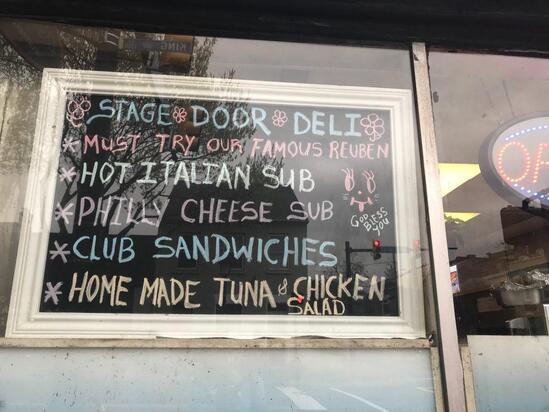 KING
STAGE DOOR DELI
* MUST TRY OUR FAMOUS REUBEN
* HOT ITALIAN SUB
* PHILLY CHEESE SUB
GOD BLESS YOU
* CLUB SANDWICHES
* HOME MADE TUNA & CHICKEN
SALAD